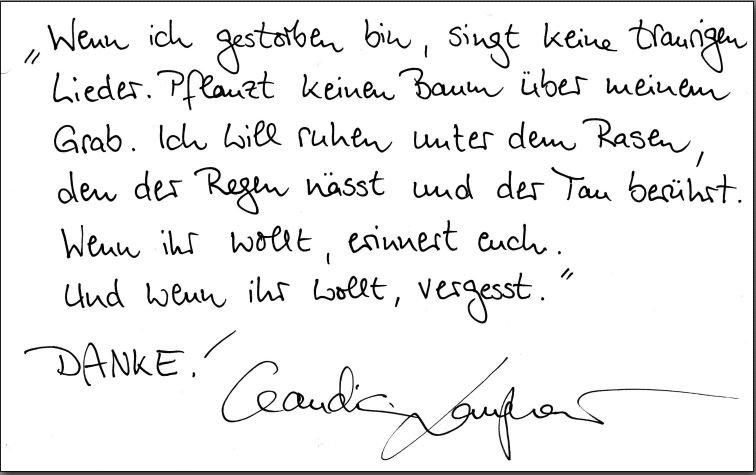 „Wenn ich gestorben bin, singt keine traurigen
Lieder. Pflanzt keinen Baum über meinem
Grab. Ich will ruhen unter dem Rasen,
den der Regen nässt und der Tau berührt.
Wenn ihr wollt, erinnert euch.
Und wenn ihr wollt, vergesst.”
DANKE!
Claudia